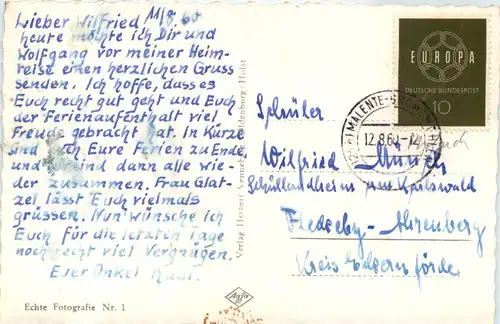 Lieber Wilfried 11/8.60
heute möchte ich Dir und
Wolfgang vor meiner Heim-
reise einen herzlichen Gruss
senden. Ich hoffe, dass es
Euch recht gut geht und Euch
der Ferienaufenthalt viel
Freude gebracht hat. In Kürze
sind Eure Ferien zu Ende
und sind dann alle wie-
der zusammen. Frau Glat-
zel lässt Euch vielmals
grüssen. Nun wünsche ich
Euch für die letzten Tage
noch recht viel Vergnügen.
Euer Onkel
Echte Fotografie Nr. 1
Verlag Herbert Oldenburg-Holst
Agfa
EUROPA
DEUTSCHE BUNDESPOST
10
MALENTE-
12.8.60-12
Schüler
Wilfried Münch
Schullandheim am Karlswald
Fleckeby-Ahrenberg
Kreis Eckernförde